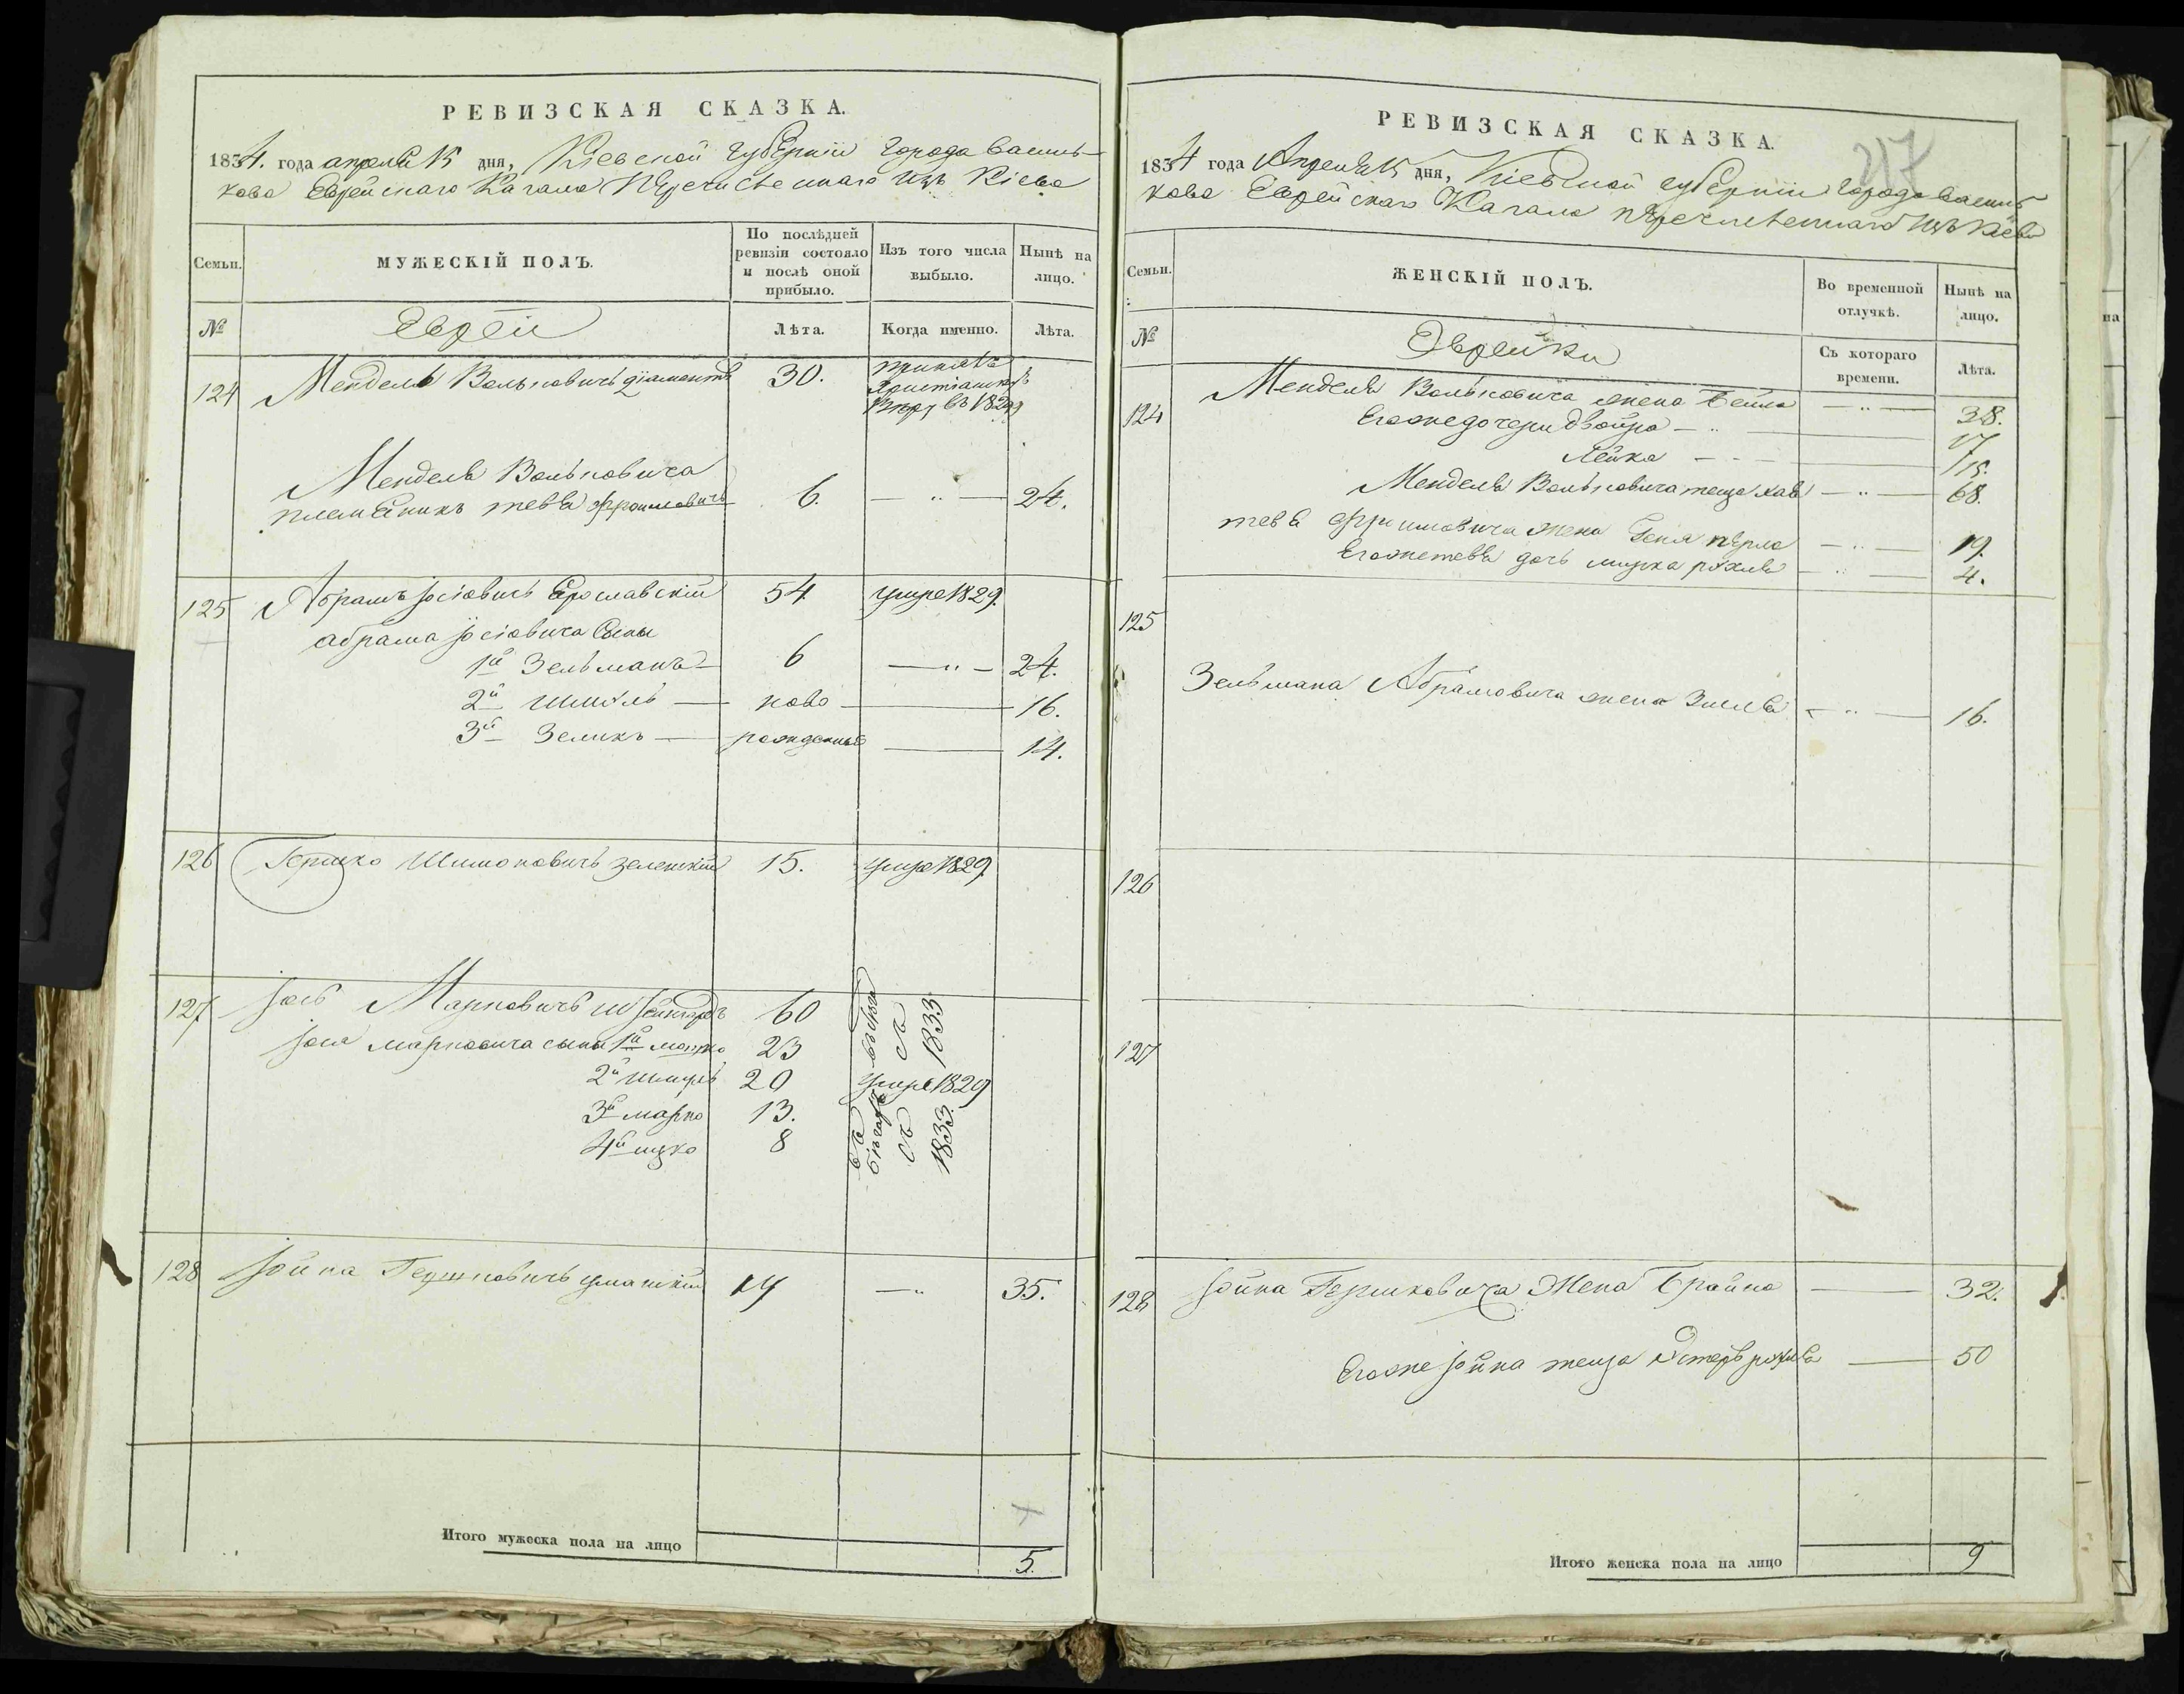 РЕВИЗСКАЯ СКАЗКА.
1834. года апреля 15 дня, Кіевской губерніи города Василь-
кова Еврейскаго Кагала Перечисленнаго изъ Кіева
Семьи.
МУЖЕСКІЙ ПОЛЪ.
По послѣдней ревизіи состояло и послѣ оной прибыло.
Изъ того числа выбыло.
Нынѣ на лицо.
№
Евреи
Лѣта.
Когда именно.
Лѣта.
124 Мендель Вольковичъ діамантъ 30. принялъ
Христіанскую
Веру въ 1829
Менделя Вольковича
племеникъ тевя Фроимовичъ 6. — " — 24.
125 Абрамъ Јосіовичъ Ерославскій 54 умре 1829.
абрама Јосіовича Сыны
1й Зельманъ 6 — " — 24.
2й шмуль — ново — 16.
3й Зеликъ — рожденные — 14.
126 Гершко Шимоновичъ зеленскій 15. умре 1829
127 Јось Марковичъ 60 въ бегах
съ
1833
Јося марковича сыны 1й мошко 23
2й шмуль 20 умре 1829
3й марко 13. въ
бегах
съ
1833.
4й ицко 8
128 Јойна Гершковичъ уманскій 17 — " 35.
Итого мужеска пола на лицо 5.
217
РЕВИЗСКАЯ СКАЗКА.
1834 года Апреля 15 дня, Кіевской губерніи города Василь
кова Еврейскаго Кагала перечисленнаго изъ Кіева
Семьи.
ЖЕНСКІЙ ПОЛЪ.
Во временной отлучкѣ.
Нынѣ на лицо.
№
Еврейки
Съ котораго времени.
Лѣта.
124 Менделя Вольковича жена Бейла — " — 38.
Егоже дочери двойра — " — 17
Лейка — 15.
Менделя Вольковича теща хава — " — 68.
тевя Фроимовича жена Геня перла — " — 19.
Егоже тевя дочь мирка рухля — " — 4.
125
Зельмана Абрамовича жена Зисля — " — 16.
126
127
128 Јойна Гершковича Жена Брайна — 32.
Егоже Јойна теща Эстеръ рухля — 50
Итого женска пола на лицо 9